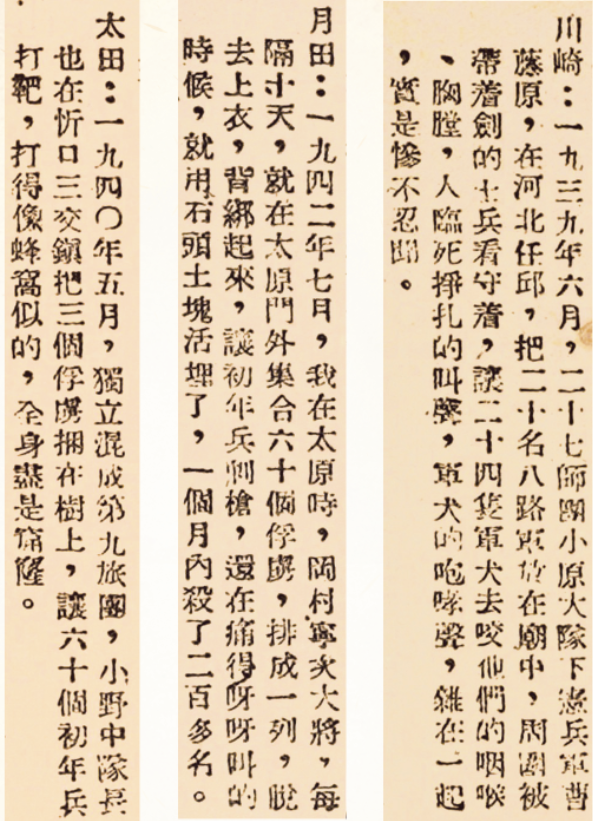 川崎：一九三九年六月，二十七師團小原大隊下憲兵軍曹
藤原，在河北任邱，把二十名八路軍放在廟中，周圍被
帶着劍的士兵看守着，讓二十四隻軍犬去咬他們的咽喉
、胸膛，人臨死掙扎的叫聲，軍犬的咆哮聲，雜在一起
，實是慘不忍聞。
月田：一九四二年七月，我在太原時，岡村寧次大將，每
隔十天，就在太原門外集合六十個俘虜，排成一列，脫
去上衣，背綁起來，讓初年兵刺槍，還在痛得呀呀叫的
時候，就用石頭土塊活埋了，一個月內殺了二百多名。
太田：一九四〇年五月，獨立混成第九旅團，小野中隊長
也在忻口三交鎮把三個俘虜捆在樹上，讓六十個初年兵
打靶，打得像蜂窩似的，全身盡是窟窿。